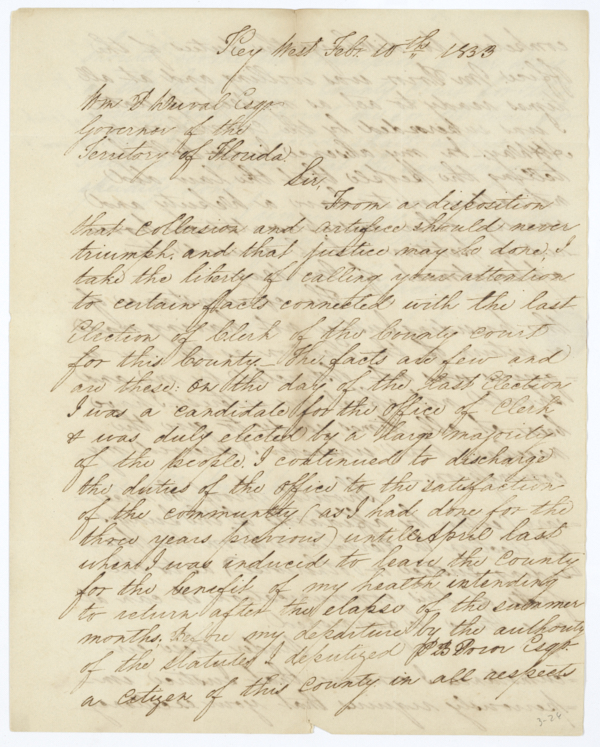 Key West Feb. 10th 1833
Wm P Duval Esqr
Governor of the
Territory of Florida
Sir,
From a disposition
that collusion and artifice should never
triumph, and that justice may be done, I
take the liberty of calling your attention
to certain facts connected with the last
Election of Clerk of the County court
for this County_ The facts are few and
are these: on the day of the last Election
I was a candidate for the office of Clerk
& was duly elected by a large majority
of the people. I continued to discharge
the duties of the office to the satisfaction
of the community (as I had done for the
three years previous) untill April last
when I was induced to leave the County
for the benefit of my health intending
to return after the elapse of the summer
months. Before my departure by the authority
of the statutes I deputized P B Prior Esqr.
a citizen of this County in all respects
3-24